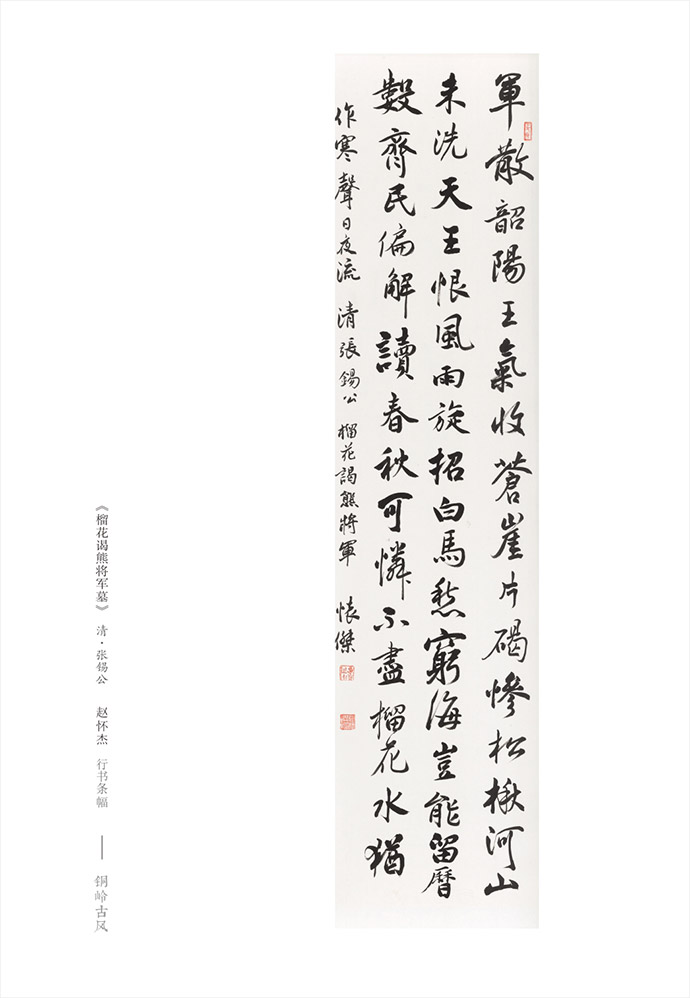 軍散韶陽王氣收蒼崖片碣慘松楸河山
未洗天王恨風雨旋招白馬愁窮海豈能留曆
數齊民偏解讀春秋可憐不盡榴花水猶
作寒聲日夜流 清 張錫公 榴花謁熊將軍 懷傑
《榴花谒熊将军墓》 清·张锡公 赵怀杰 行书条幅 —— 铜岭古风